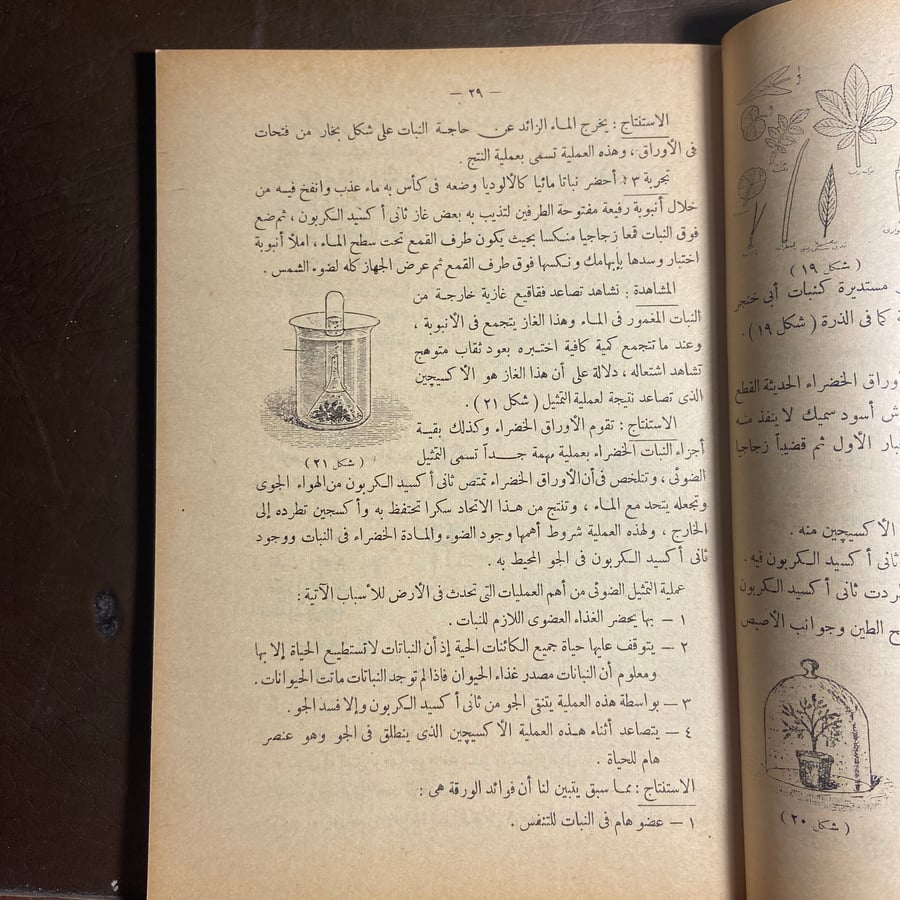 — ٢٩ —
الاستنتاج : يخرج الماء الزائد عن حاجة النبات على شكل بخار من فتحات
فى الأوراق ، وهذه العملية تسمى بعملية النتح .
تجربة ٣ : أحضر نباتا مائيا كالألوديا وضعه فى كأس به ماء عذب وانفخ فيه من
خلال أنبوبة رفيعة مفتوحة الطرفين لتذيب به بعض غاز ثانى أكسيد الكربون ، ثم ضع
فوق النبات قمعا زجاجيا منكسا بحيث يكون طرف القمع تحت سطح الماء ، املأ أنبوبة
اختبار وسدها بإبهامك ونكسها فوق طرف القمع ثم عرض الجهاز كله لضوء الشمس .
المشاهدة : نشاهد تصاعد فقاقيع غازية خارجة من
النبات المغمور فى الماء وهذا الغاز يتجمع فى الأنبوبة ،
وعند ما تتجمع كمية كافية اختبره بعود ثقاب متوهج
تشاهد اشتعاله ، دلالة على أن هذا الغاز هو الأكسيچين
الذى تصاعد نتيجة لعملية التمثيل ( شكل ٢١ ) .
الاستنتاج : تقوم الأوراق الخضراء وكذلك بقية
أجزاء النبات الخضراء بعملية مهمة جداً تسمى التمثيل
( شكل ٢١ )
الضوئى ، وتتلخص فى أن الأوراق الخضراء تمتص ثانى أكسيد الكربون من الهواء الجوى
وتجعله يتحد مع الماء ، وتنتج من هذا الاتحاد سكرا تحتفظ به وأكسجين تطرده إلى
الخارج ، ولهذه العملية شروط أهمها وجود الضوء والمادة الخضراء فى النبات ووجود
ثانى أكسيد الكربون فى الجو المحيط به .
عملية التمثيل الضوئى من أهم العمليات التى تحدث فى الأرض للأسباب الآتية :
١ — بها يحضر الغذاء العضوى اللازم للنبات .
٢ — يتوقف عليها حياة جميع الكائنات الحية إذ أن النباتات لا تستطيع الحياة إلا بها
ومعلوم أن النباتات مصدر غذاء الحيوان فاذا لم توجد النباتات ماتت الحيوانات .
٣ — بواسطة هذه العملية يتنقى الجو من ثانى أكسيد الكربون وإلا فسد الجو .
٤ — يتصاعد أثناء هذه العملية الأكسيچين الذى ينطلق فى الجو وهو عنصر
هام للحياة .
الاستنتاج : مما سبق يتبين لنا أن فوائد الورقة هى :
١ — عضو هام فى النبات للتنفس .
( شكل ١٩ )
مستديرة كنبات أبى خنجر
كما فى الذرة ( شكل ١٩ ) .
الخضراء الحديثة القطع
أسود سميك لا ينفذ منه
الأول ثم قضيباً زجاجيا
الأكسيچين منه .
ثانى أكسيد الكربون فيه .
ثانى أكسيد الكربون
الطين وجوانب الأصيص
( شكل ٢٠ )